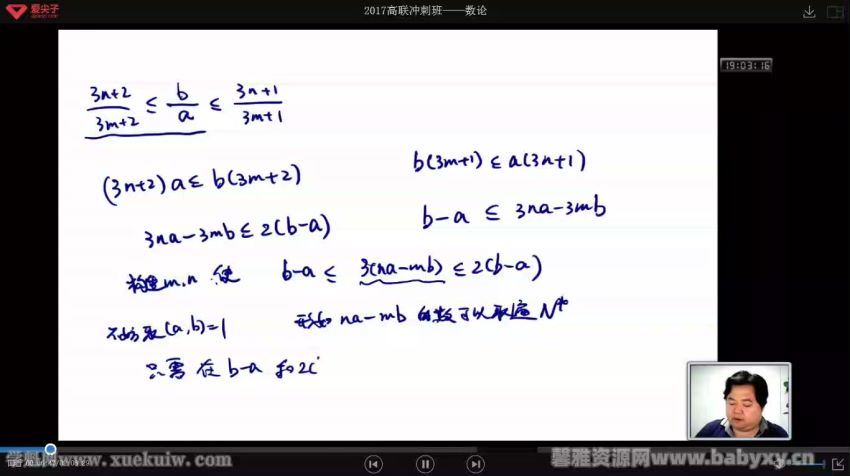 爱尖子
2017高联冲刺班——数论
19:03:16
(3n+2)/(3m+2) ≤ b/a ≤ (3n+1)/(3m+1)
(3n+2)a ≤ b(3m+2)
b(3m+1) ≤ a(3n+1)
3na-3mb ≤ 2(b-a)
b-a ≤ 3na-3mb
构造m,n 使 b-a ≤ 3(na-mb) ≤ 2(b-a)
不妨取(a,b)=1 形如 na-mb 的数可以取遍 N*
只需 在 b-a 和 2(
www.xuekuiw.com
馨雅资源网www.babyxy.cn